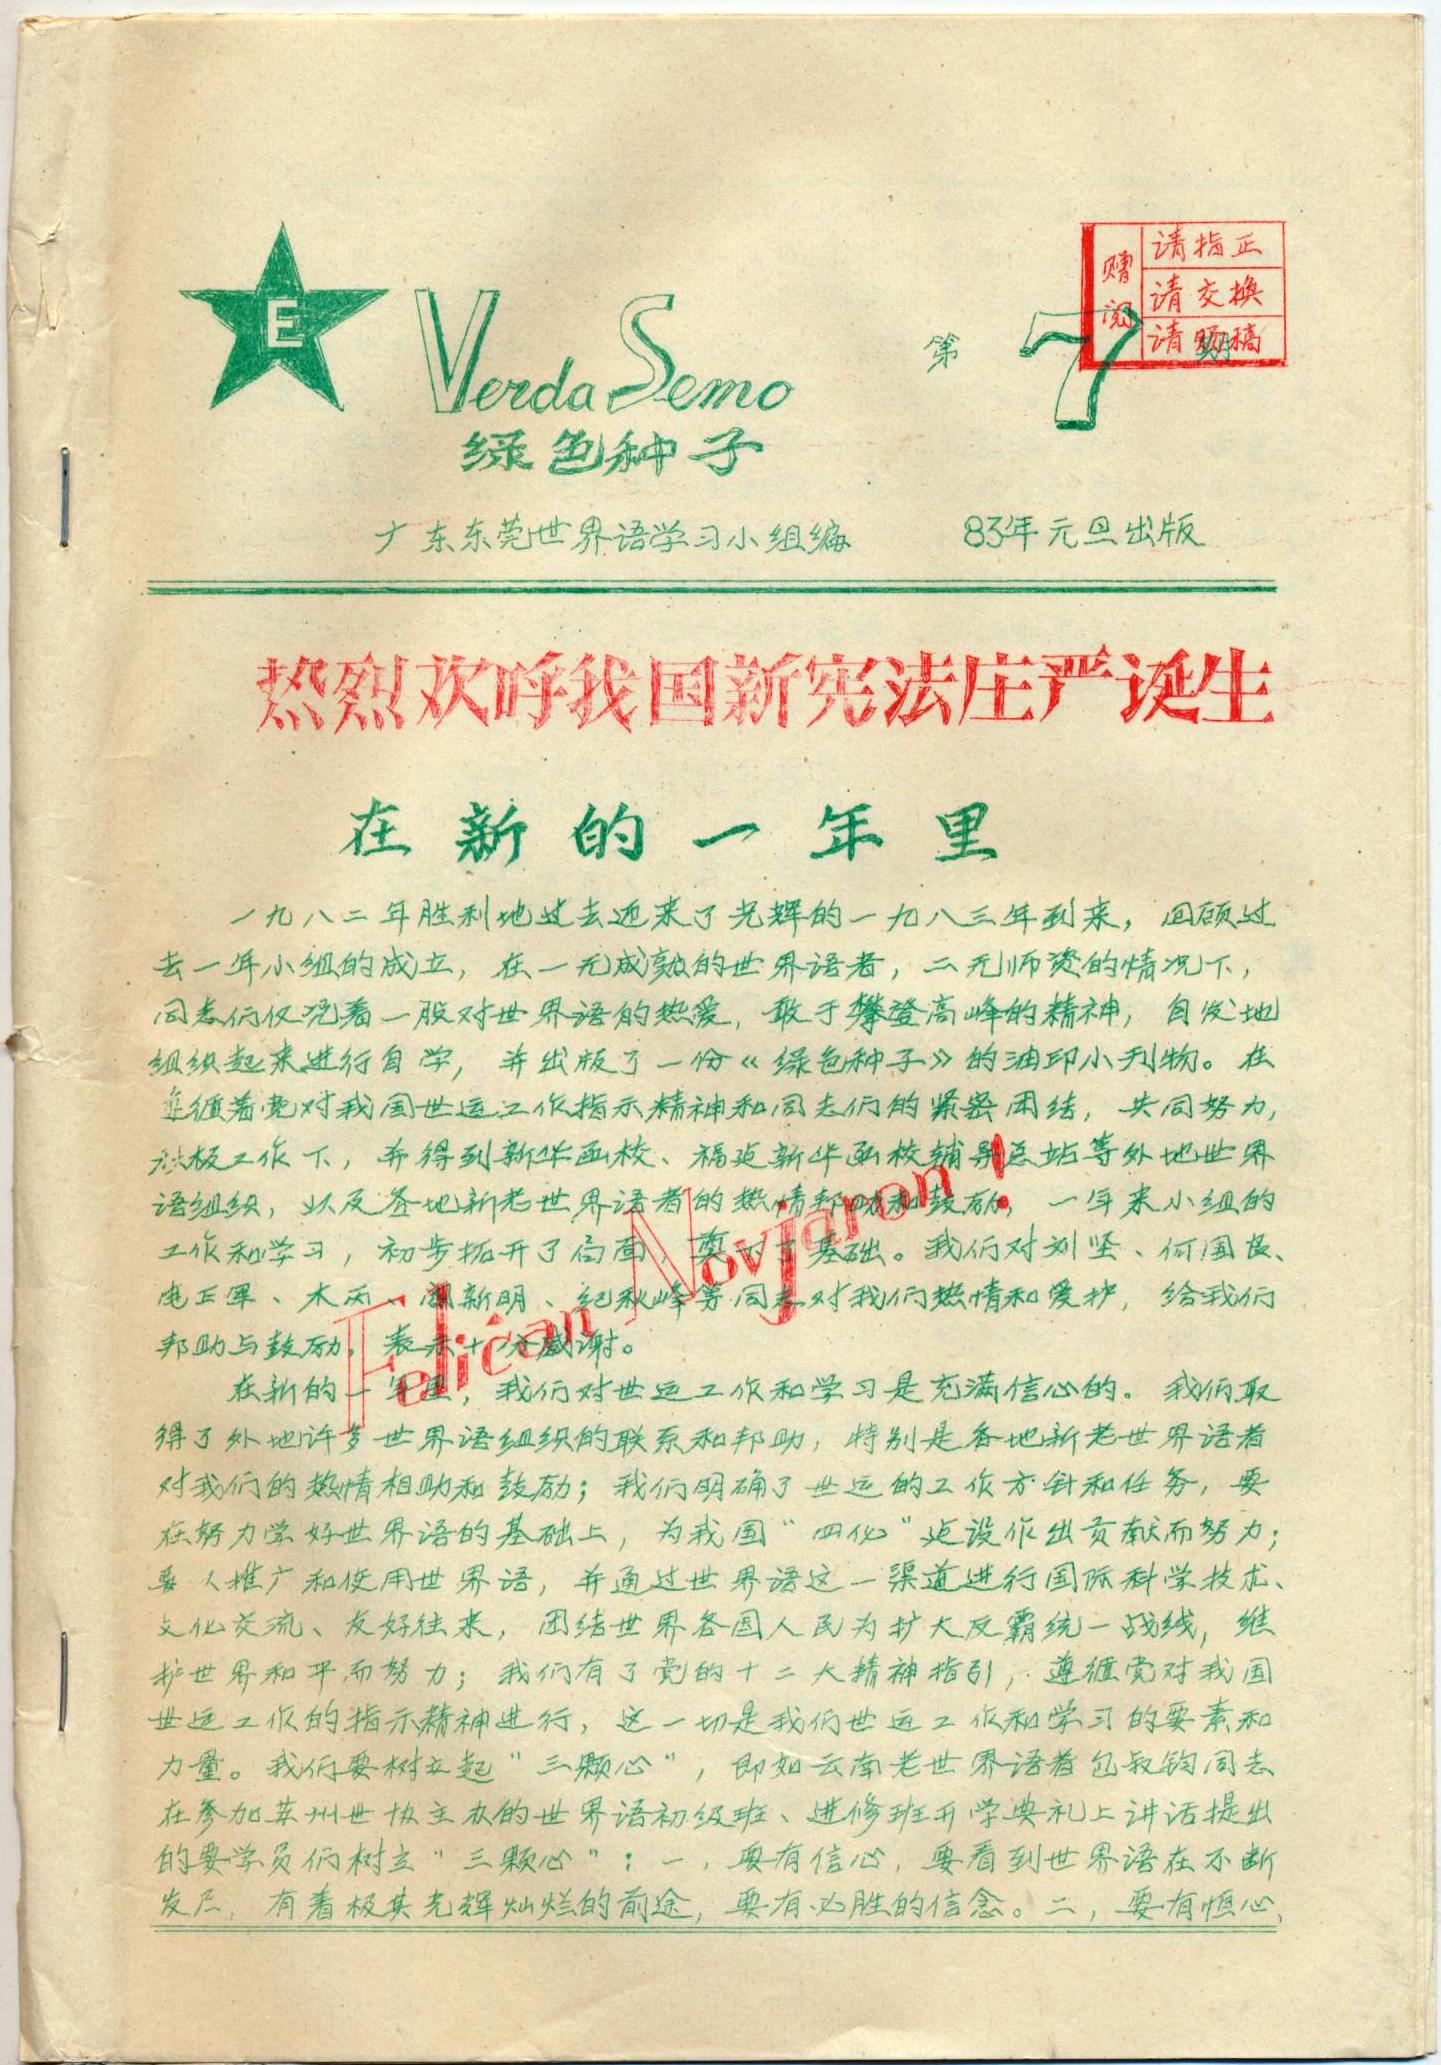 E
Verda Semo
绿色种子
第7期
赠阅
请指正
请交换
请赐稿
广东东莞世界语学习小组编 83年元旦出版
热烈欢呼我国新宪法庄严诞生
在新的一年里
一九八二年胜利地过去迎来了光辉的一九八三年到来，回顾过
去一年小组的成立，在一无成熟的世界语者，二无师资的情况下，
同志们仅凭着一股对世界语的热爱，敢于攀登高峰的精神，自发地
组织起来进行自学，并出版了一份《绿色种子》的油印小刊物。在
遵循着党对我国世运工作指示精神和同志们的紧密团结，共同努力，
积极工作下，并得到新华函校、福建新华函校辅导总站等外地世界
语组织，以及各地新老世界语者的热情帮助和鼓励，一年来小组的
工作和学习，初步拓开了局面，奠下了基础。我们对刘坚、何国良、
正军、木丙、新明、纪秋峰等同志对我们热情和爱护，给我们
帮助与鼓励，表示十分感谢。
Feliĉan Novjaron!
在新的一年里，我们对世运工作和学习是充满信心的。我们取
得了外地许多世界语组织的联系和帮助，特别是各地新老世界语者
对我们的热情相助和鼓励；我们明确了世运的工作方针和任务，要
在努力学好世界语的基础上，为我国“四化”建设作出贡献而努力；
要人推广和使用世界语，并通过世界语这一渠道进行国际科学技术、
文化交流、友好往来，团结世界各国人民为扩大反霸统一战线，维
护世界和平而努力；我们有了党的十二大精神指引，遵循党对我国
世运工作的指示精神进行，这一切是我们世运工作和学习的要素和
力量。我们要树立起“三颗心”，即如云南老世界语者包叔钧同志
在参加苏州世协主办的世界语初级班、进修班开学典礼上讲话提出
的要学员们树立“三颗心”：一，要有信心，要看到世界语在不断
发尸，有着极其光辉灿烂的前途，要有必胜的信念。二，要有恒心，